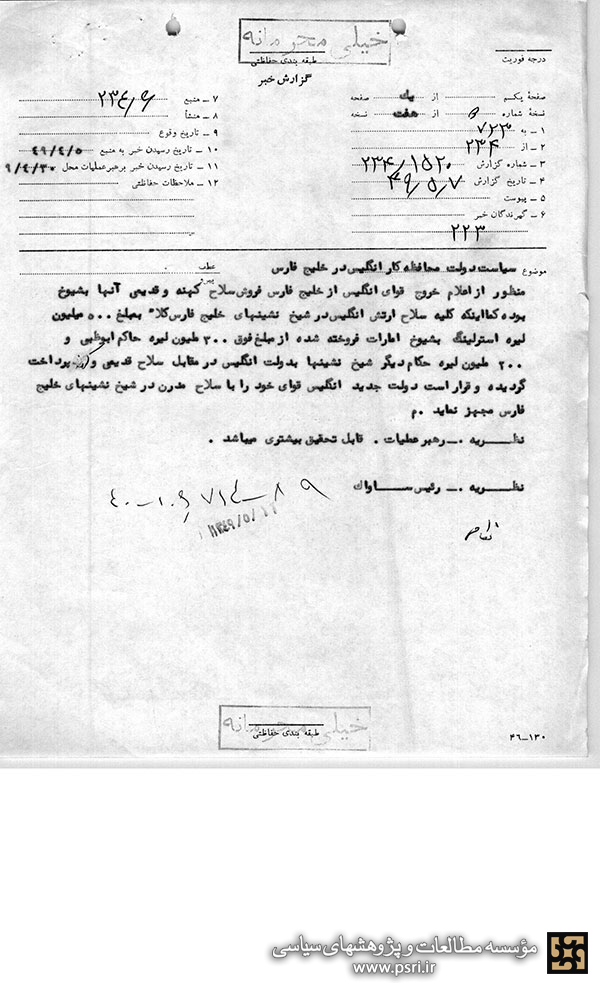 خیلی محرمانه
طبقه بندی حفاظتی
گزارش خبر
درجه فوریت
صفحهٔ یکسم از یک صفحه
نسخهٔ شماره از هفت نسخه
۱ ـ به ۷۲۳
۲ ـ از ۲۳۴
۳ ـ شماره گزارش ۲۳۴/۱۵۲۰
۴ ـ تاریخ گزارش ۴۹/۵/۷
۵ ـ پیوست
۶ ـ گیرندگان خبر
۲۲۳
۷ ـ منبع
۸ ـ منشأ
۹ ـ تاریخ وقوع
۱۰ ـ تاریخ رسیدن خبر به منبع ۴۹/۴/۵
۱۱ ـ تاریخ رسیدن خبر برهبر عملیات محل ۹/۴/۳۰
۱۲ ـ ملاحظات حفاظتی
موضوع سیاست دولت محافظه کار انگلیس در خلیج فارس
عطف
پیرو
منظور از اعلام خروج قوای انگلیس از خلیج فارس فروش سلاح کهنه و قدیمی آنها بشیوخ
بوده کمااینکه کلیه سلاح ارتش انگلیس در شیخ نشینهای خلیج فارس کلا" بمبلغ ۵۰۰ میلیون
لیره استرلینگ بشیوخ امارات فروخته شده از مبلغ فوق ۳۰۰ ملیون لیره حاکم ابوظبی و
۲۰۰ ملیون لیره حکام دیگر شیخ نشینها بدولت انگلیس در مقابل سلاح قدیمی و پرداخت
گردیده و قرار است دولت جدید انگلیس قوای خود را با سلاح مدرن در شیخ نشینهای خلیج
فارس مجهز نماید .م
نظریه ـ رهبر عملیات . قابل تحقیق بیشتری میباشد .
نظریه ـ رئیس ساواك
۱۳۴۹/۵/۱۱
خیلی محرمانه
طبقه بندی حفاظتی
۴۶ـ۱۳۰
مؤسسه مطالعات و پژوهشهای سیاسی
www.psri.ir